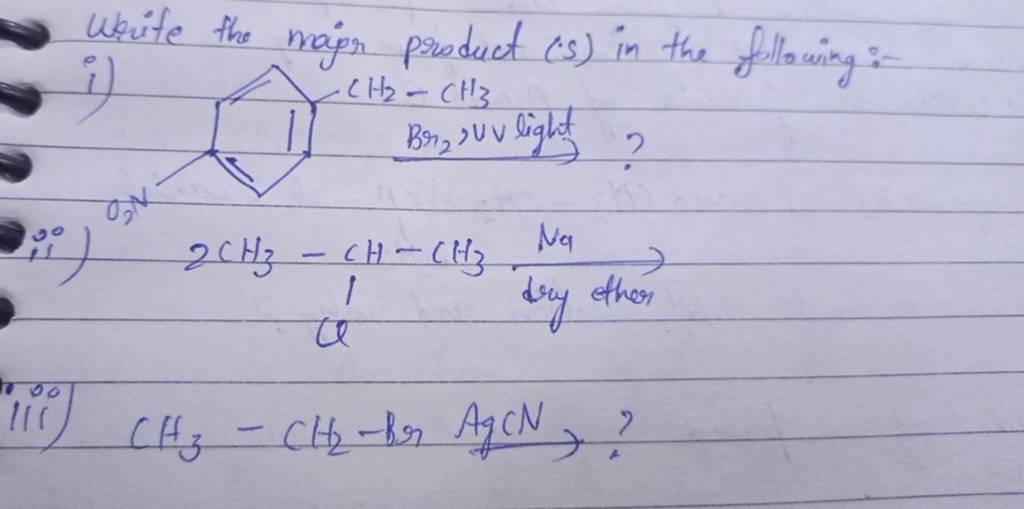 Write the major product (s) in the following :-
i) CH2 - CH3
Br2, UV light ?
O2N
ii) 2CH3 - CH - CH3 Na
dry ether
Cl
iii) CH3 - CH2 - Br AgCN ?